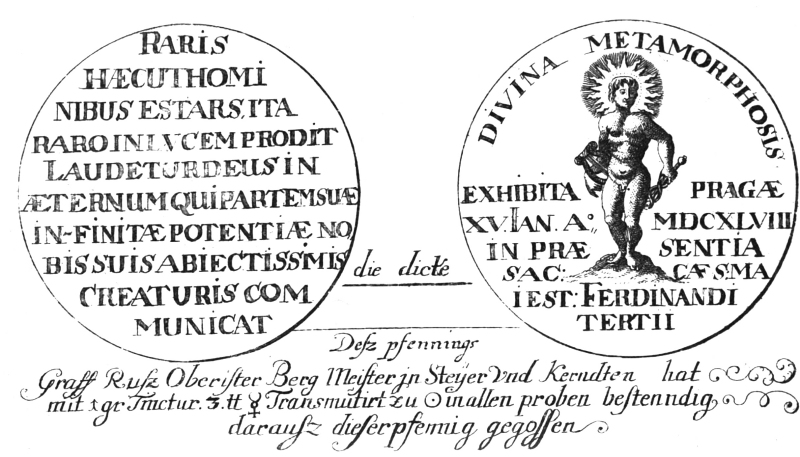 RARIS
HÆCUTHOMI
NIBUS ESTARS,ITA
RARO IN LVCEM PRODIT
LAUDETURDEUS IN
ÆTERNUM QUI PARTEM SUÆ
IN-FINITÆ POTENTIÆ NO,
BIS SUIS ABIECTISSIMIS
CREATURIS COM
MUNICAT
DIVINA METAMORPHOSIS
EXHIBITA PRAGÆ
XV. IAN. Aº, MDCXLVIII
IN PRÆ SENTIA
SAC: CÆS:MA
IEST: FERDINANDI
TERTII
die dicté
Desz pfennings
Graff Rusz Oberister Berg Meister jn Steyer Vnd Kerndten hat
mit 1 gr Tinctur. 3. ℔ ☿ Transmutirt zu ☉ in allen proben bestenndig
darausz dieser pfennig gegossen